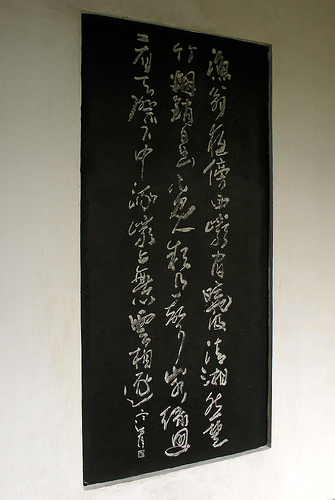 漁翁夜傍西巖宿曉汲清湘然楚
竹烟銷日出不見人欸乃一聲山水綠回
看天際下中流巖上無心雲相逐